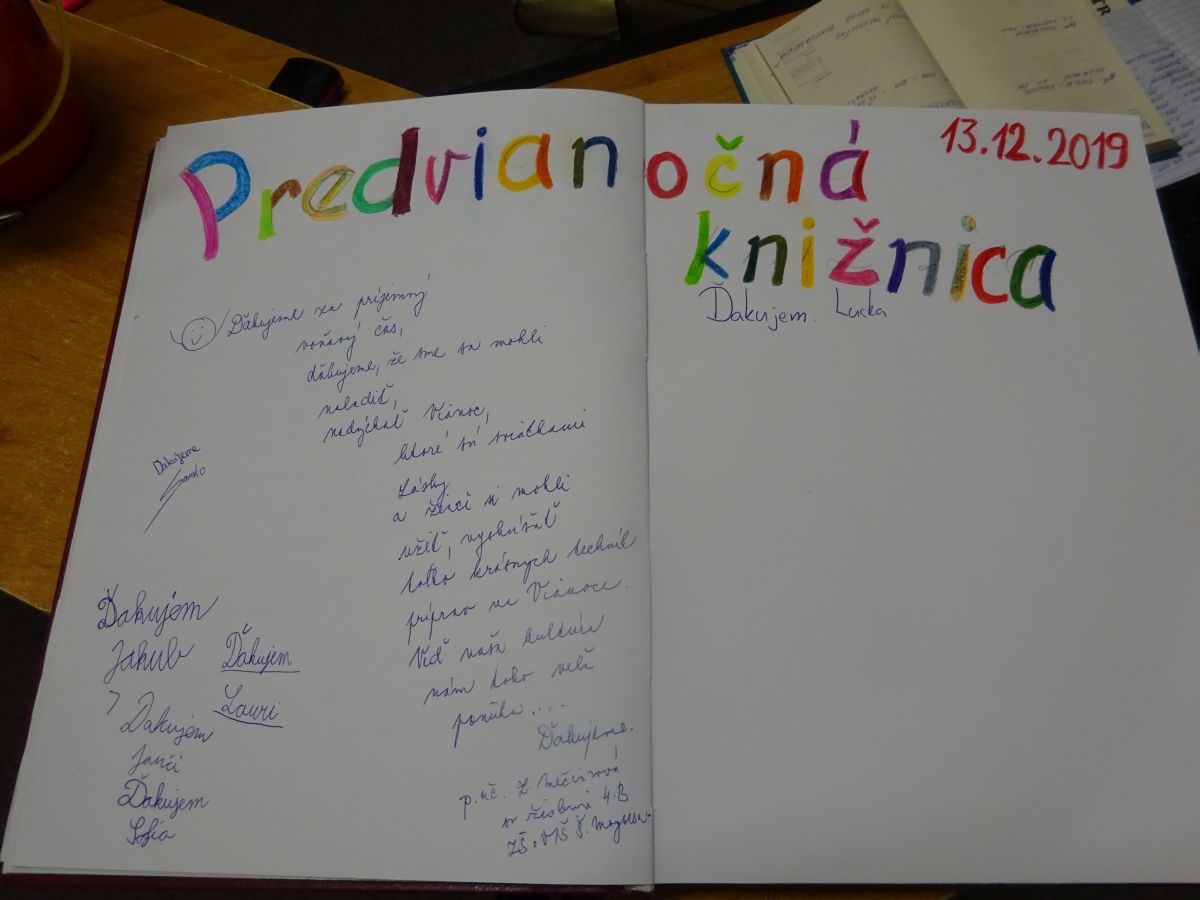 Predvianočná
13.12.2019
knižnica
Ďakujem. Lucka
Ďakujeme za príjemný
voňavý čas,
ďakujeme, že sme sa mohli
naladiť,
nadýchať Vianoc,
ktoré sú sviatkami
Lásky
a žiaci si mohli
užiť, vyskúšať
toľko krásnych techník
príprav na Vianoce.
Veď naša kultúra
nám toho veľa
ponúka....
Ďakujeme.
p. uč. Z.
so žiakmi 4.B
ZŠ s MŠ Š. Moysesa.
Ďakujeme
Samko
Ďakujem
Jakub
Ďakujem
Lauri
Ďakujem
Janči
Ďakujem
Sofia